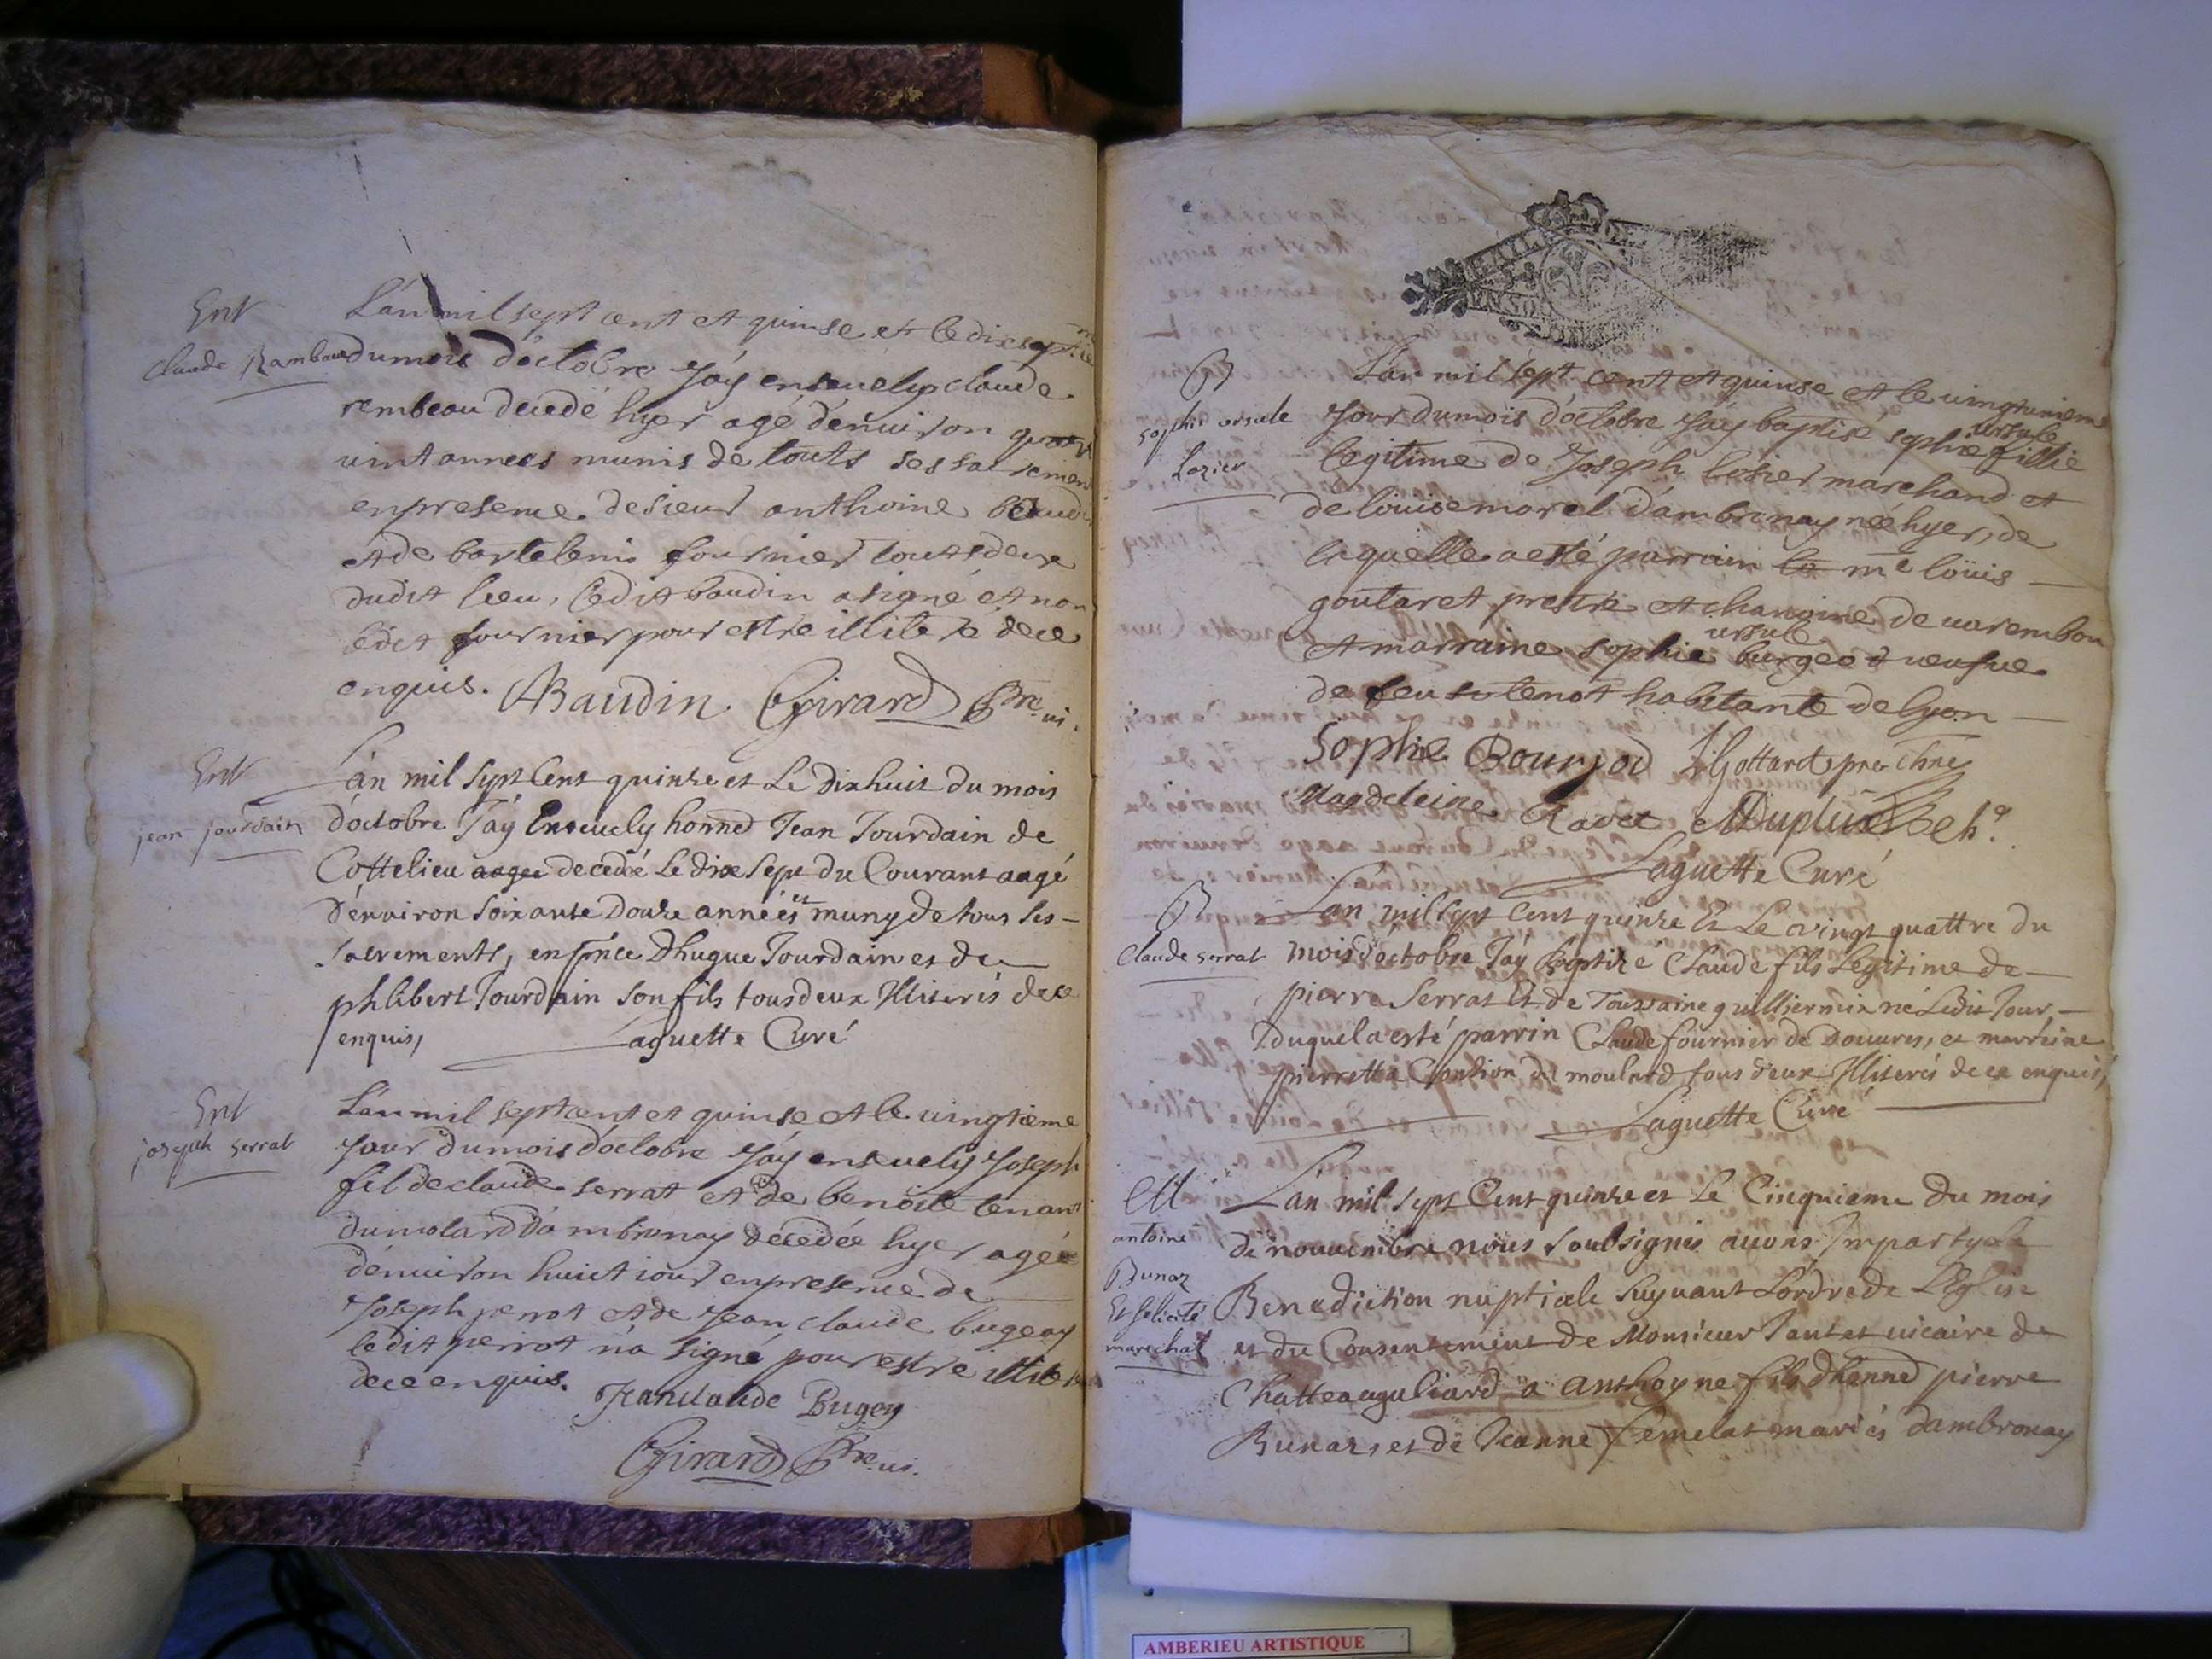 Ent
Claude Rambaud
L'an mil sept cent et quinse et le dix septie
du mois d'octobre j'ay ensevely claude
rembeau decedé hyer agé d'enuiron quatr
uint annees munis de touts ses sacremen
en presence de sieur anthoine baudin
et de bartelemi fournier touts deux
dudit lieu, ledit baudin a signé et non
ledit fournier pour estre illiteré de ce
enquis. Baudin. Girard Pre ui.
Ent
jean jourdain
L'an mil sept Cent quinze et Le dixhuit du mois
d'octobre J'ay Enseuely honned Jean Jourdain de
Cottelieu aagee decedé Le dixe sept du Courant aagé
d'enuiron soixante Douze années et muny de tous ses
sacrements, en pnce D'hugue Jourdain et de
philibert Jourdain son fils tous deux Illiterés de ce
enquis, Laguette Curé
Ent
joseph serrat
L'an mil sept cent et quinse et le uingtieme
jour du mois d'octobre j'ay enseuely joseph
fil de claude serrat et de benoite tenant
du molard d'ambronay decedée hyer agée
d'enuiron huict iour en presence de
joseph perrot et de jean claude bugeay
ledit perrot n'a signé pour estre illite
de ce enquis. Jean Claude Bugey
Girard Pre ui.
B
sophie ursule
Lozier
L'an mil sept cent et quinse et le uingtunieme
jour du mois d'octobre j'ay baptisé sophie ursule fillie
legitime de joseph losier marchand et
de louise morel d'ambronay née hyer, de
laquelle a esté parrain le me loüis
goutaret prestre et chanoine de uarembon
et marraine sophie ursule burgeot ueufue
de feu tenot habitante de lyon
Sophie Bourjod Gottaret pre chne
Magdeleine Ravet MDuplut
Laguette Curé
B
Claude serrat
L'an mil sept Cent quinze Et Le vingt quattre du
mois d'octobre J'ay Baptizé Claude fils Legitime de
pierre Serrat Et de Toussaine guilliermin né Ledit Jour,
Duquel a esté parrin Claude fournier de Douures, et marreine
pierrette du moulard tous deux Illiterés de ce enquis,
Laguette Curé
M
antoine
Bunaz
Et felicité
marechal
L'an mil sept Cent quinze et Le Cinquieme du mois
de nouuembre nous soubsignés auons Imparty La
Benediction nuptiale suyuant L'ordre de L'Eglise
et du Consentement de Monsieur Tantet uicaire de
Chatteauguliard a anthoyne fils D'honned pierre
Bunaz, et de Jeanne femelat mariés d'ambronay
AMBERIEU ARTISTIQUE